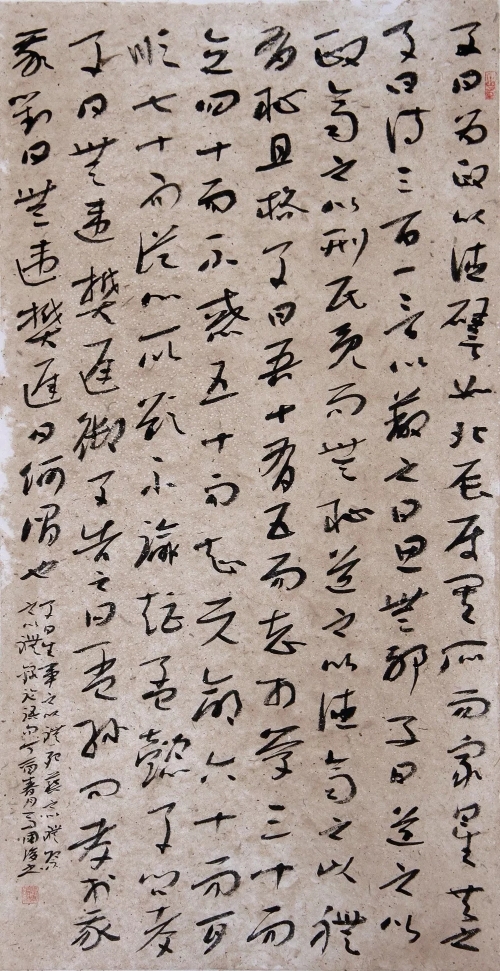 子曰為政以德譬如北辰居其所而眾星共之
子曰詩三百一言以蔽之曰思無邪子曰道之以
政齊之以刑民免而無恥道之以德齊之以禮
有恥且格子曰吾十有五而志於學三十而
立四十而不惑五十而知天命六十而耳
順七十而從心所欲不踰矩孟懿子問孝
子曰無違樊遲御子告之曰孟孫問孝於我
我對曰無違樊遲曰何謂也
子曰生事之以禮死葬之以禮祭
之以禮